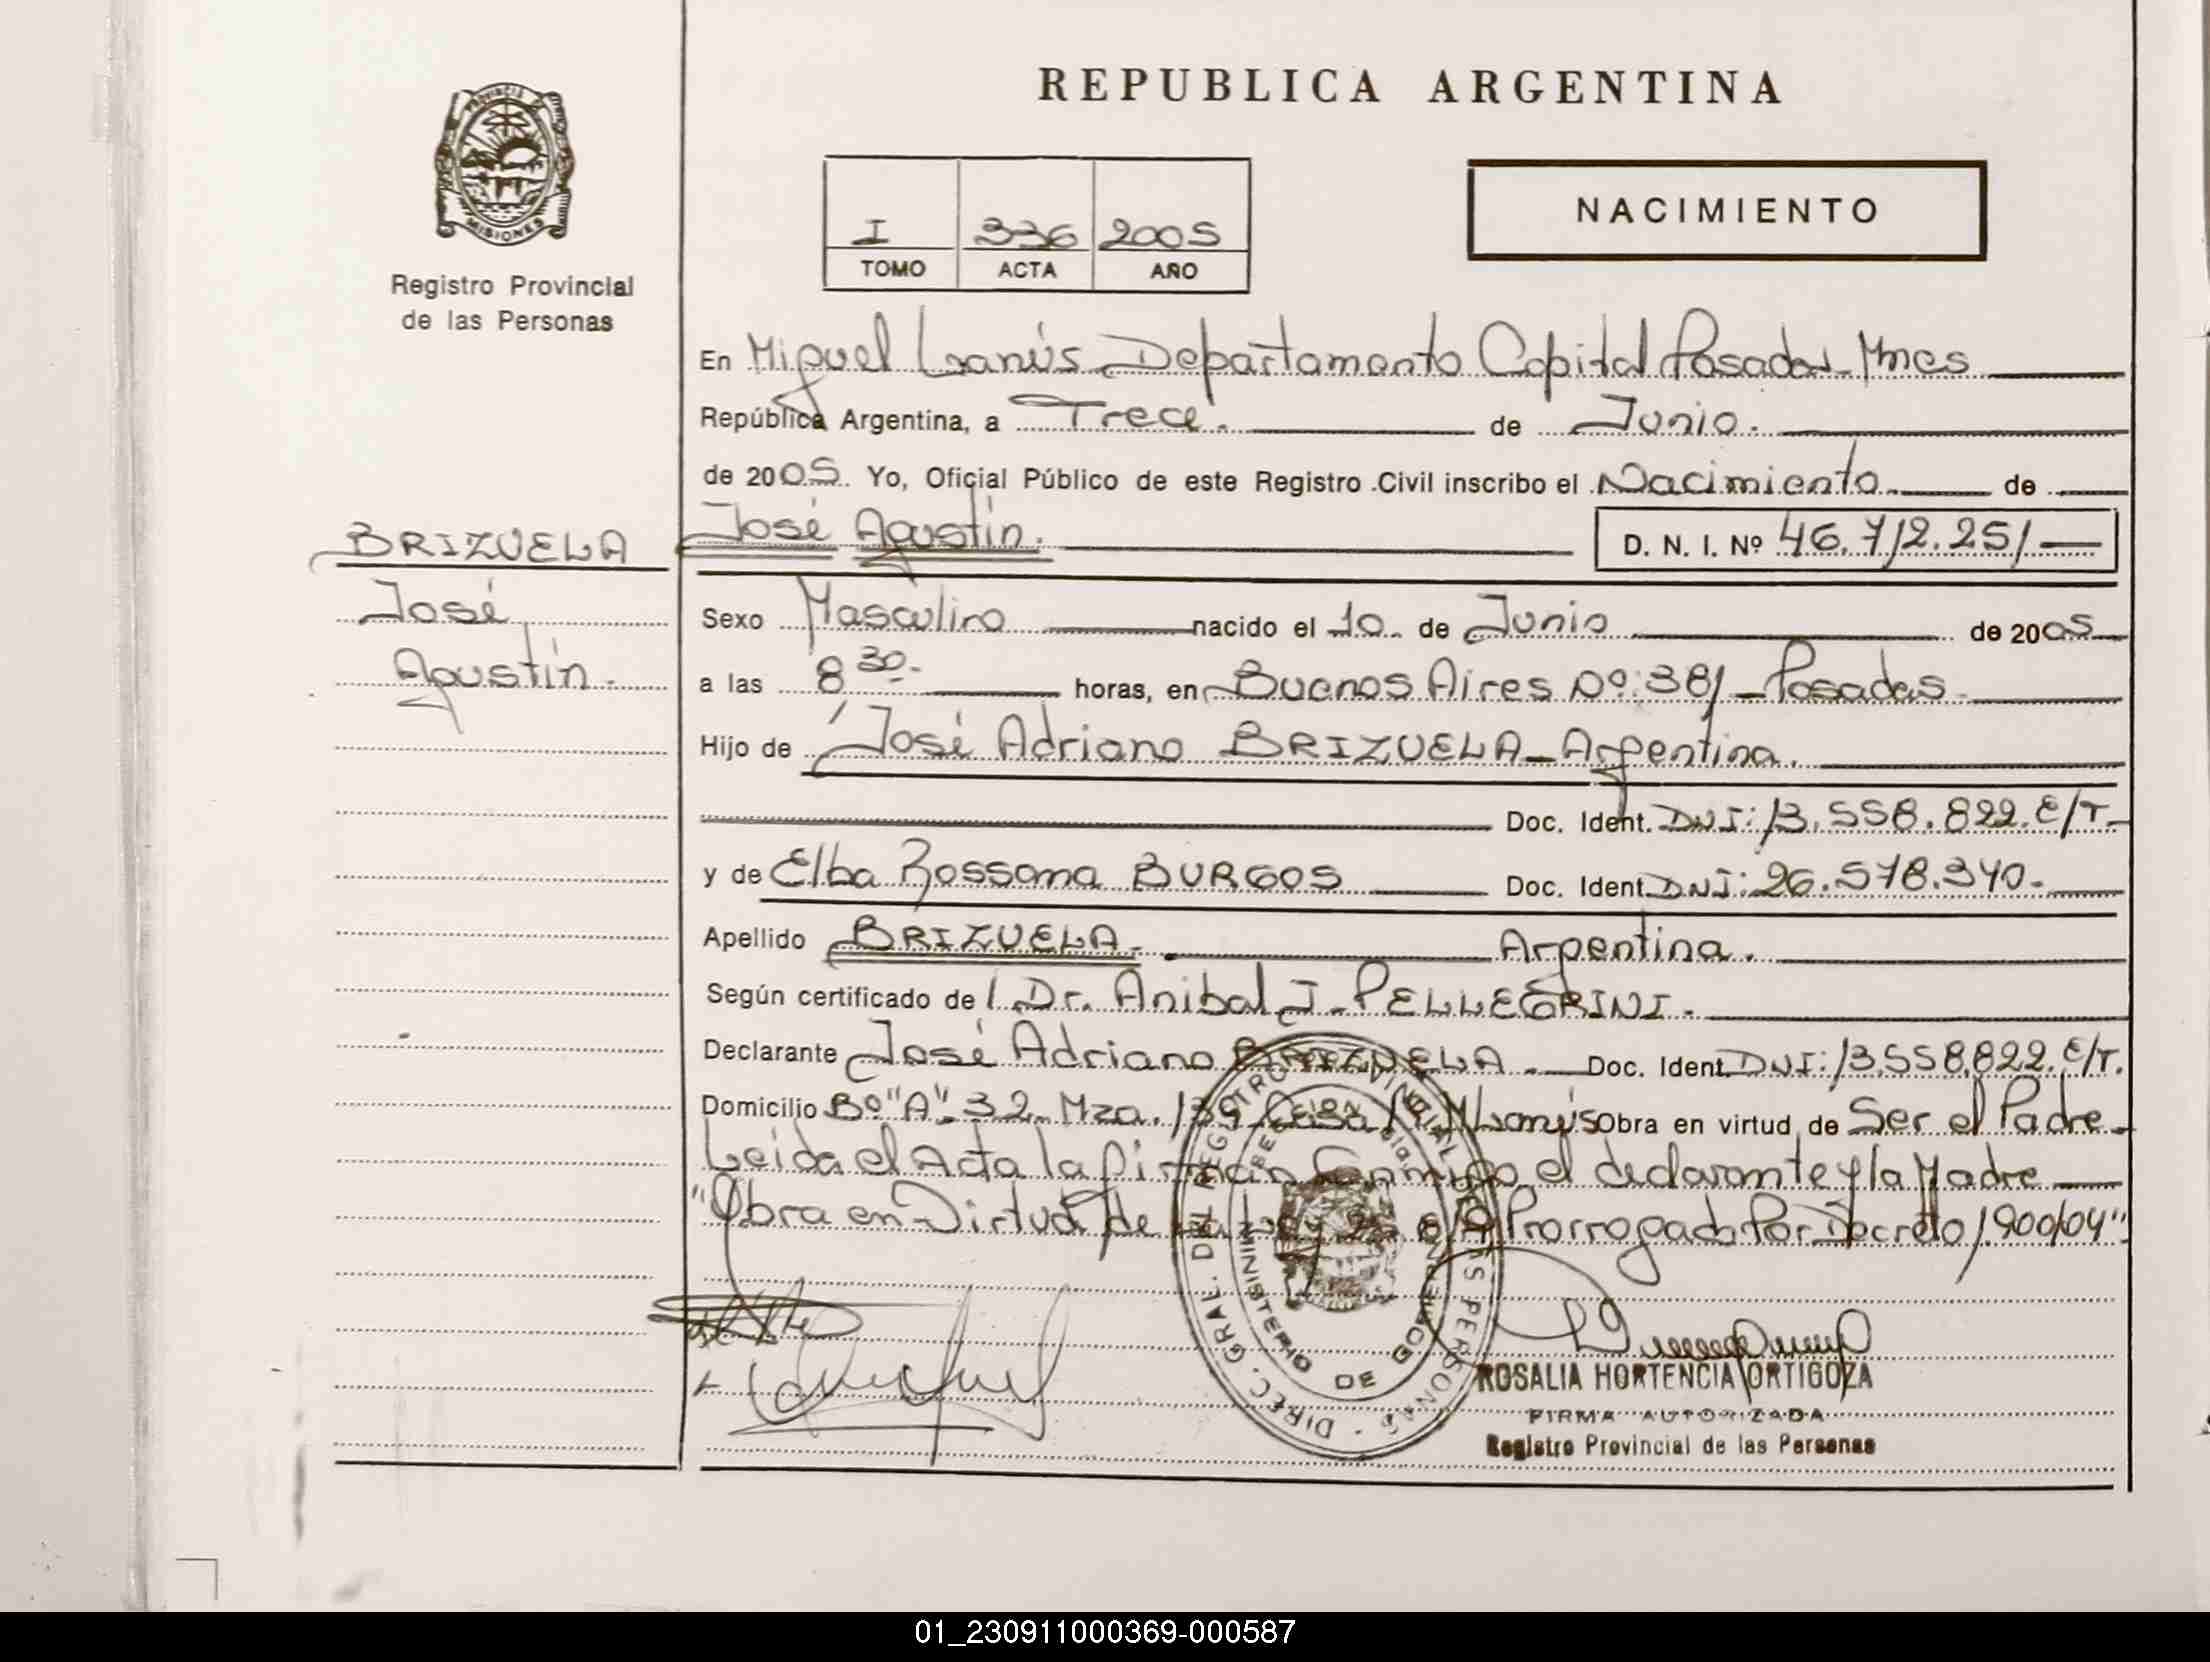 REPUBLICA ARGENTINA
PROVINCIA DE
MISIONES
Registro Provincial
de las Personas
NACIMIENTO
I 336 2005
TOMO ACTA AÑO
En Miguel Lanús Departamento Capital Posadas Mnes
República Argentina, a Trece. de Junio.
de 2005. Yo, Oficial Público de este Registro Civil inscribo el Nacimiento de
BRIZUELA José Agustín. D. N. I. Nº 46.712.251
José
Agustín.
Sexo Masculino nacido el 10 de Junio de 2005
a las 8 30. horas, en Buenos Aires Nº: 381 Posadas
Hijo de José Adriano BRIZUELA Argentina.
Doc. Ident. DNI: 13.558.822. E/T.
y de Elba Rossana BURGOS Doc. Ident. DNI: 26.578.340.
Apellido BRIZUELA. Argentina.
Según certificado de Dr. Anibal J. PELLEGRINI.
Declarante José Adriano BRIZUELA. Doc. Ident. DNI: 13.558.822. E/T.
Domicilio Bº "A" 32 Mza. 139 Casa M. Lanús obra en virtud de Ser el Padre
Leida el Acta la firman Conmigo el declarante y la Madre
"Obra en Virtud de la Ley Prorrogada Por Decreto 1.900/04"
DIREC. GRAL. DEL REGISTRO PROVINCIAL DE LAS PERSONAS
MINISTERIO DE GOBIERNO
ROSALIA HORTENCIA ORTIGOZA
FIRMA AUTORIZADA
Registro Provincial de las Personas
01_230911000369-000587